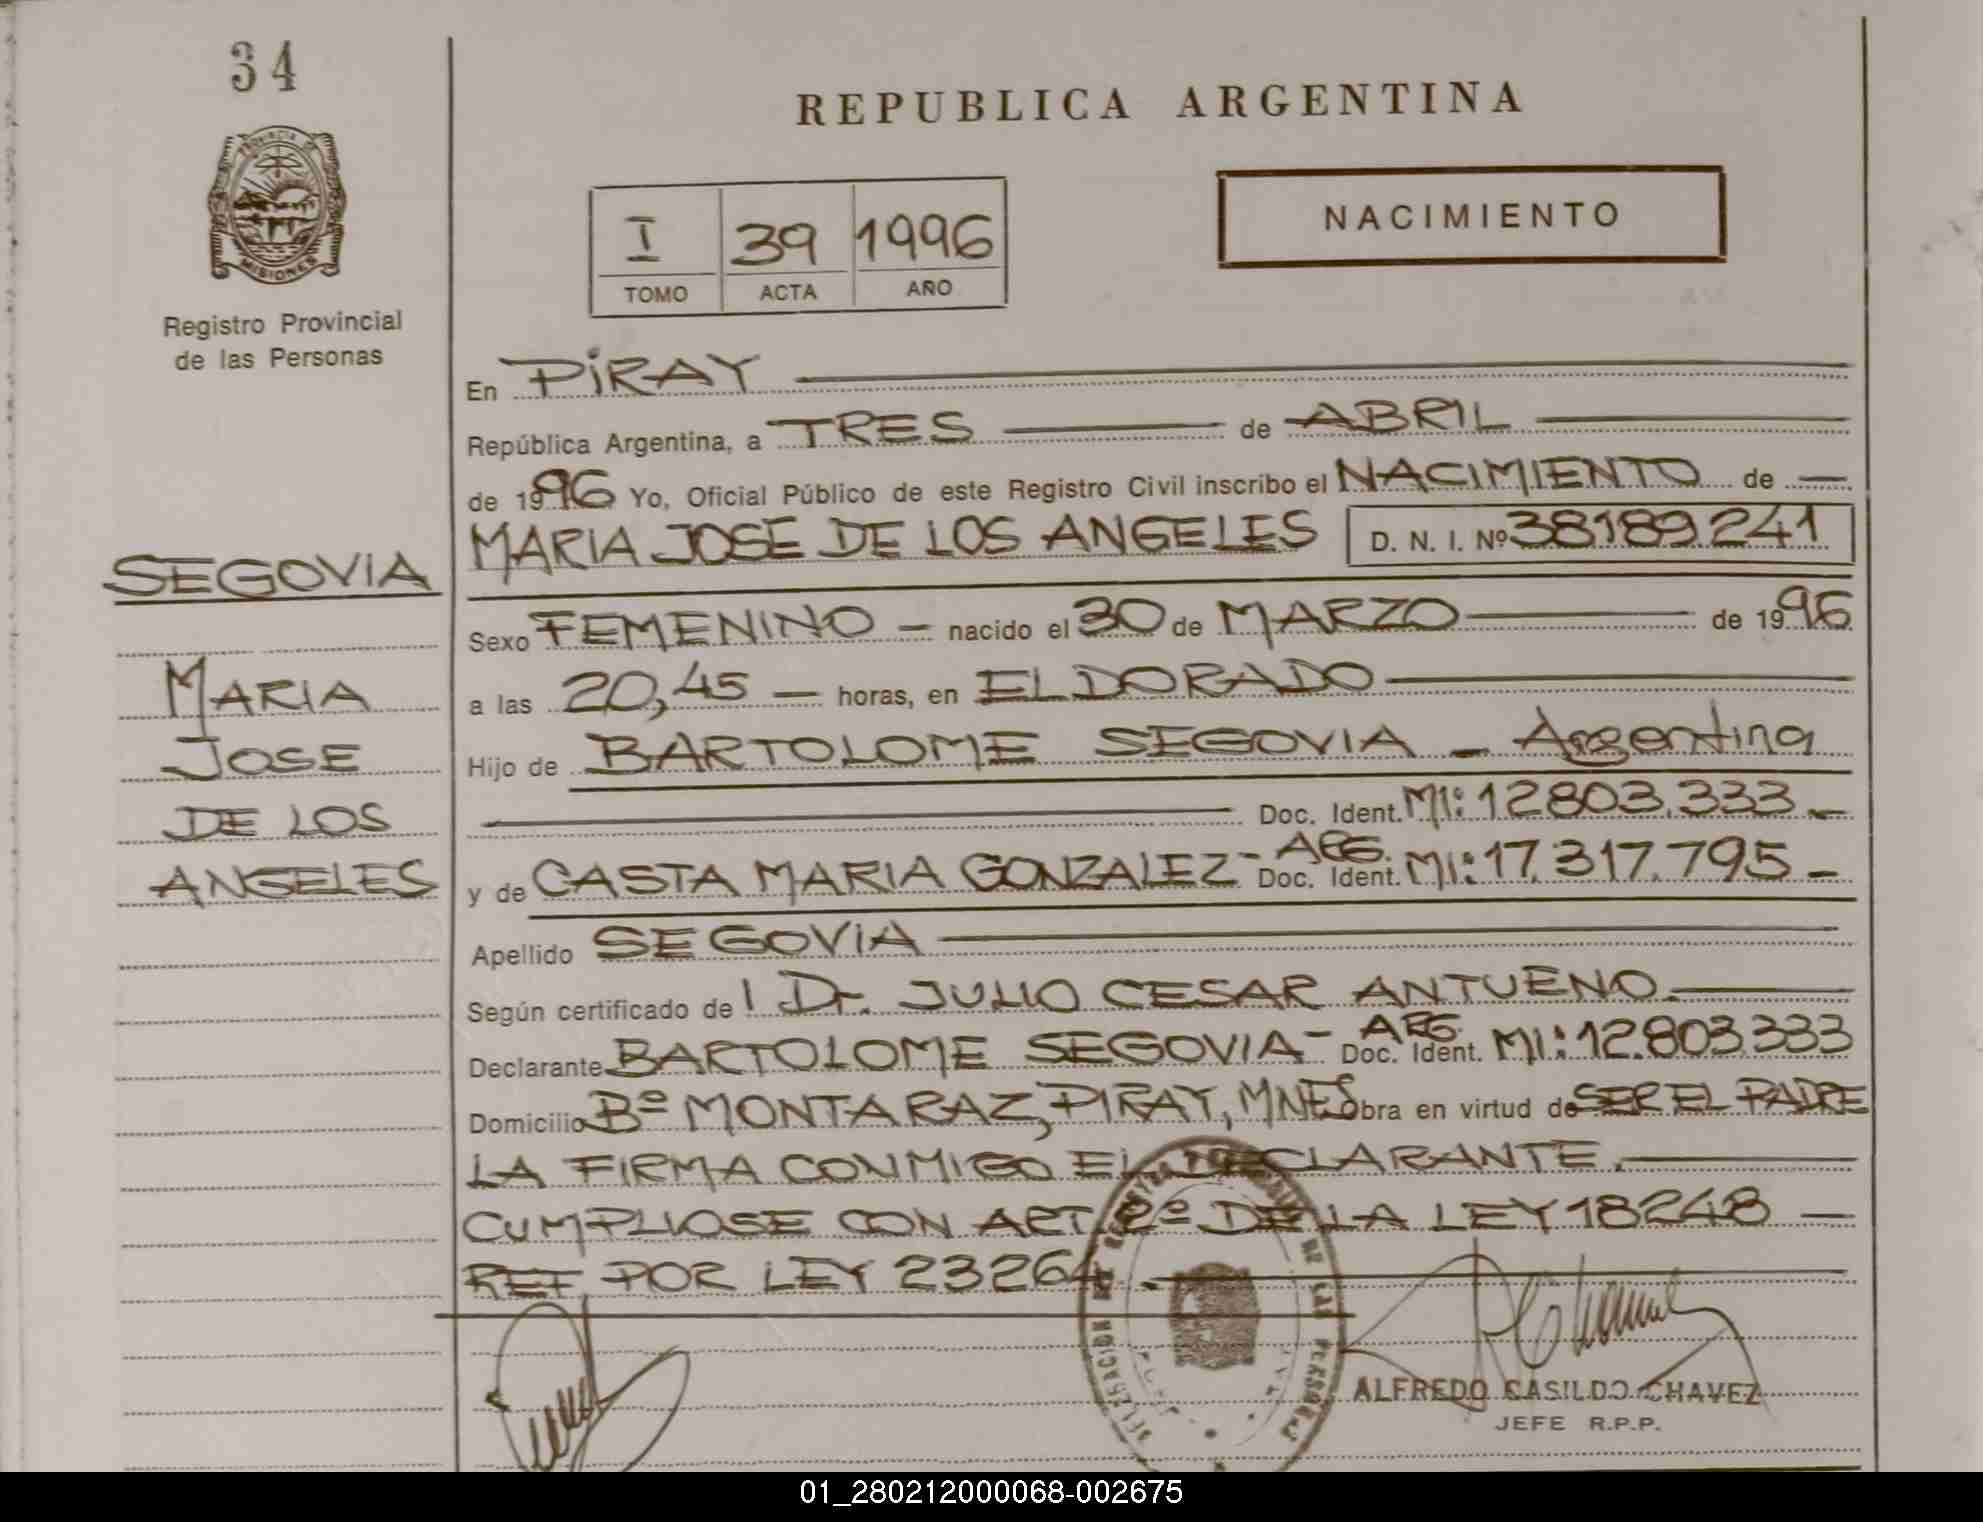 34
PROVINCIA DE
MISIONES
Registro Provincial
de las Personas
REPUBLICA ARGENTINA
I 39 1996
TOMO ACTA AÑO
NACIMIENTO
SEGOVIA
MARIA
JOSE
DE LOS
ANGELES
En PIRAY
República Argentina, a TRES de ABRIL
de 1996 Yo, Oficial Público de este Registro Civil inscribo el NACIMIENTO de —
MARIA JOSE DE LOS ANGELES D. N. I. Nº 38189241
Sexo FEMENINO — nacido el 30 de MARZO de 1996
a las 20,45 — horas, en ELDORADO
Hijo de BARTOLOME SEGOVIA — Argentina
Doc. Ident. MI: 12803.333 —
y de CASTA MARIA GONZALEZ - ARG. Doc. Ident. MI: 17.317.795 —
Apellido SEGOVIA
Según certificado de l Dr. JULIO CESAR ANTUENO.
Declarante BARTOLOME SEGOVIA - ARG. Doc. Ident. MI: 12.803.333
Domicilio Bº MONTARAZ, PIRAY, MNES Obra en virtud de SER EL PADRE
LA FIRMA CONMIGO EL DECLARANTE.
CUMPLIOSE CON ART. 2º DE LA LEY 18248 —
REF POR LEY 23264. —
ALFREDO CASILDO CHAVEZ
JEFE R.P.P.
01_280212000068-002675